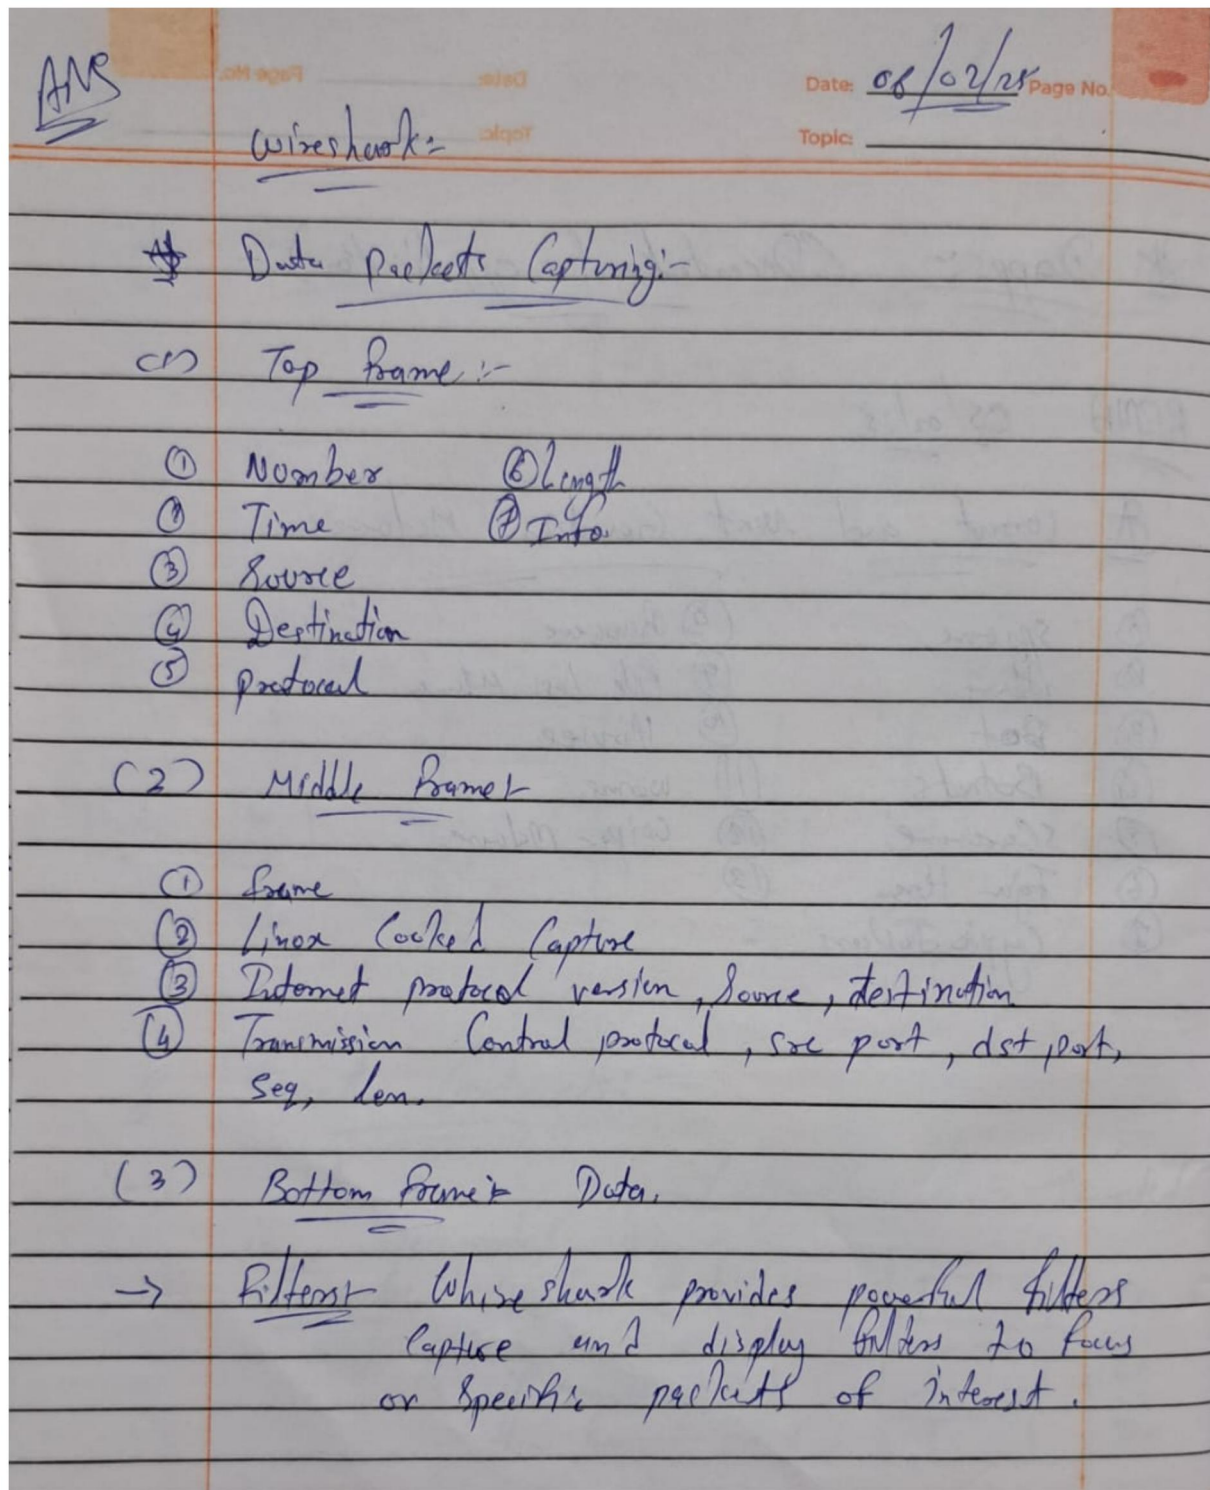 ANS
Date: 08/02/25 Page No.
Topic:
Wireshark:-
Data Packets Capturing:-
(1) Top frame:-
① Number ⑥ Length
② Time ⑦ Info.
③ Source
④ Destination
⑤ protocol
(2) Middle frame:-
① frame
② Linux Cooked Capture
③ Internet protocol version, Source, destination
④ Transmission Control protocol, src port, dst port,
Seq, len.
(3) Bottom frame:- Data.
→ Filters:- Whireshark provides powerful filters
Capture and display filters to focus
on specific packets of interest.